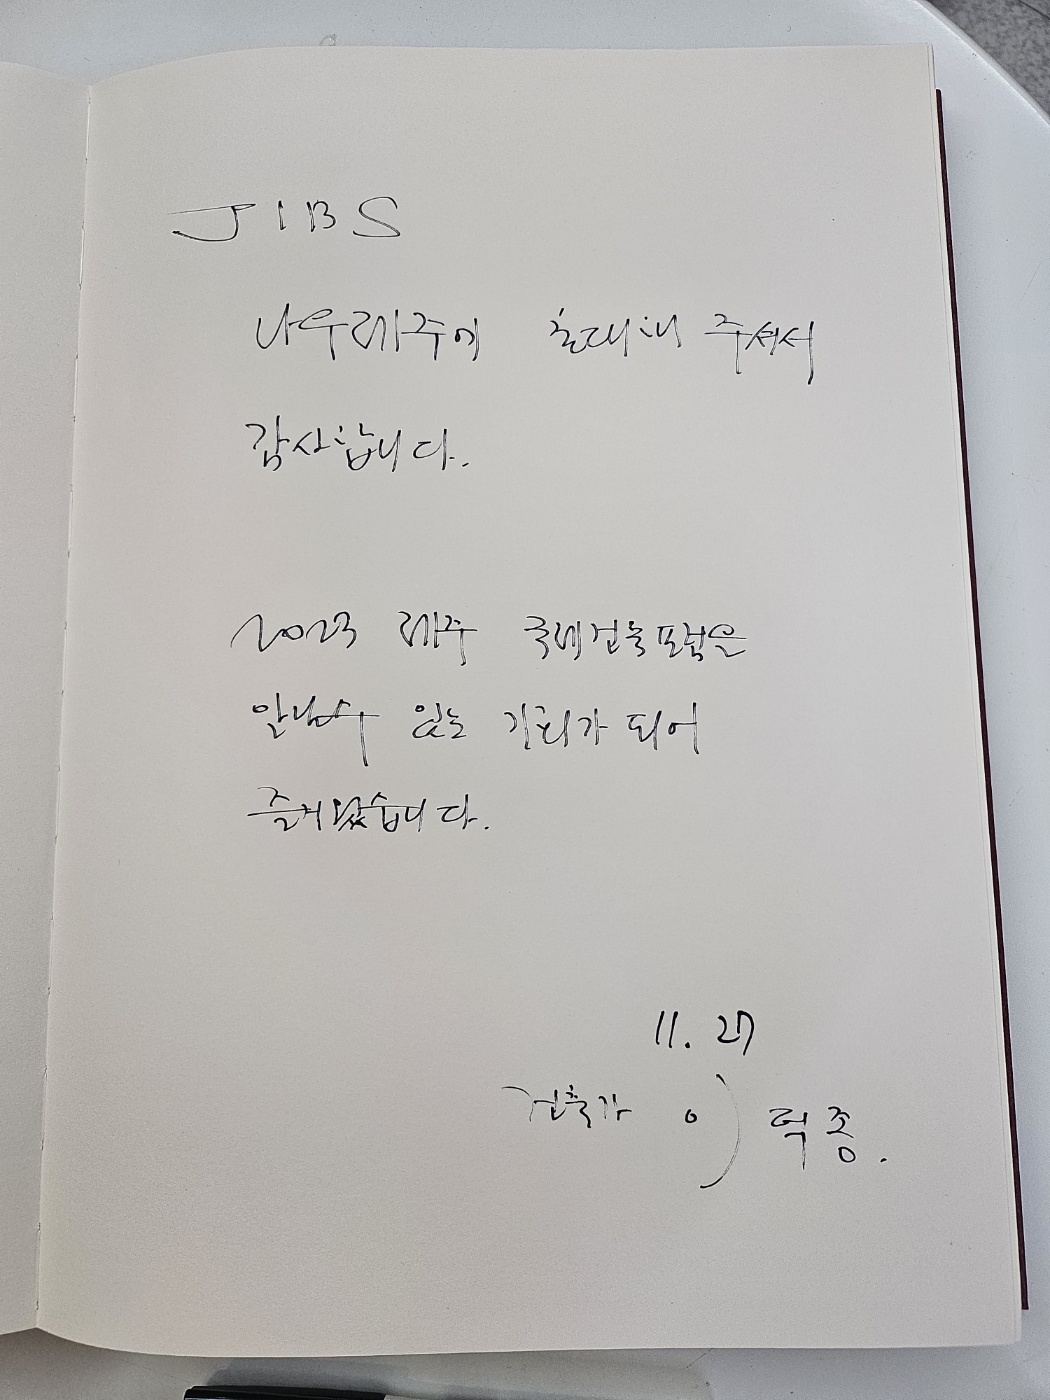 JIBS
나우제주에 초대해 주셔서
감사합니다.
2023 제주 국제건축포럼을
알릴수 있는 기회가 되어
즐거웠습니다.
11. 27
건축가 이